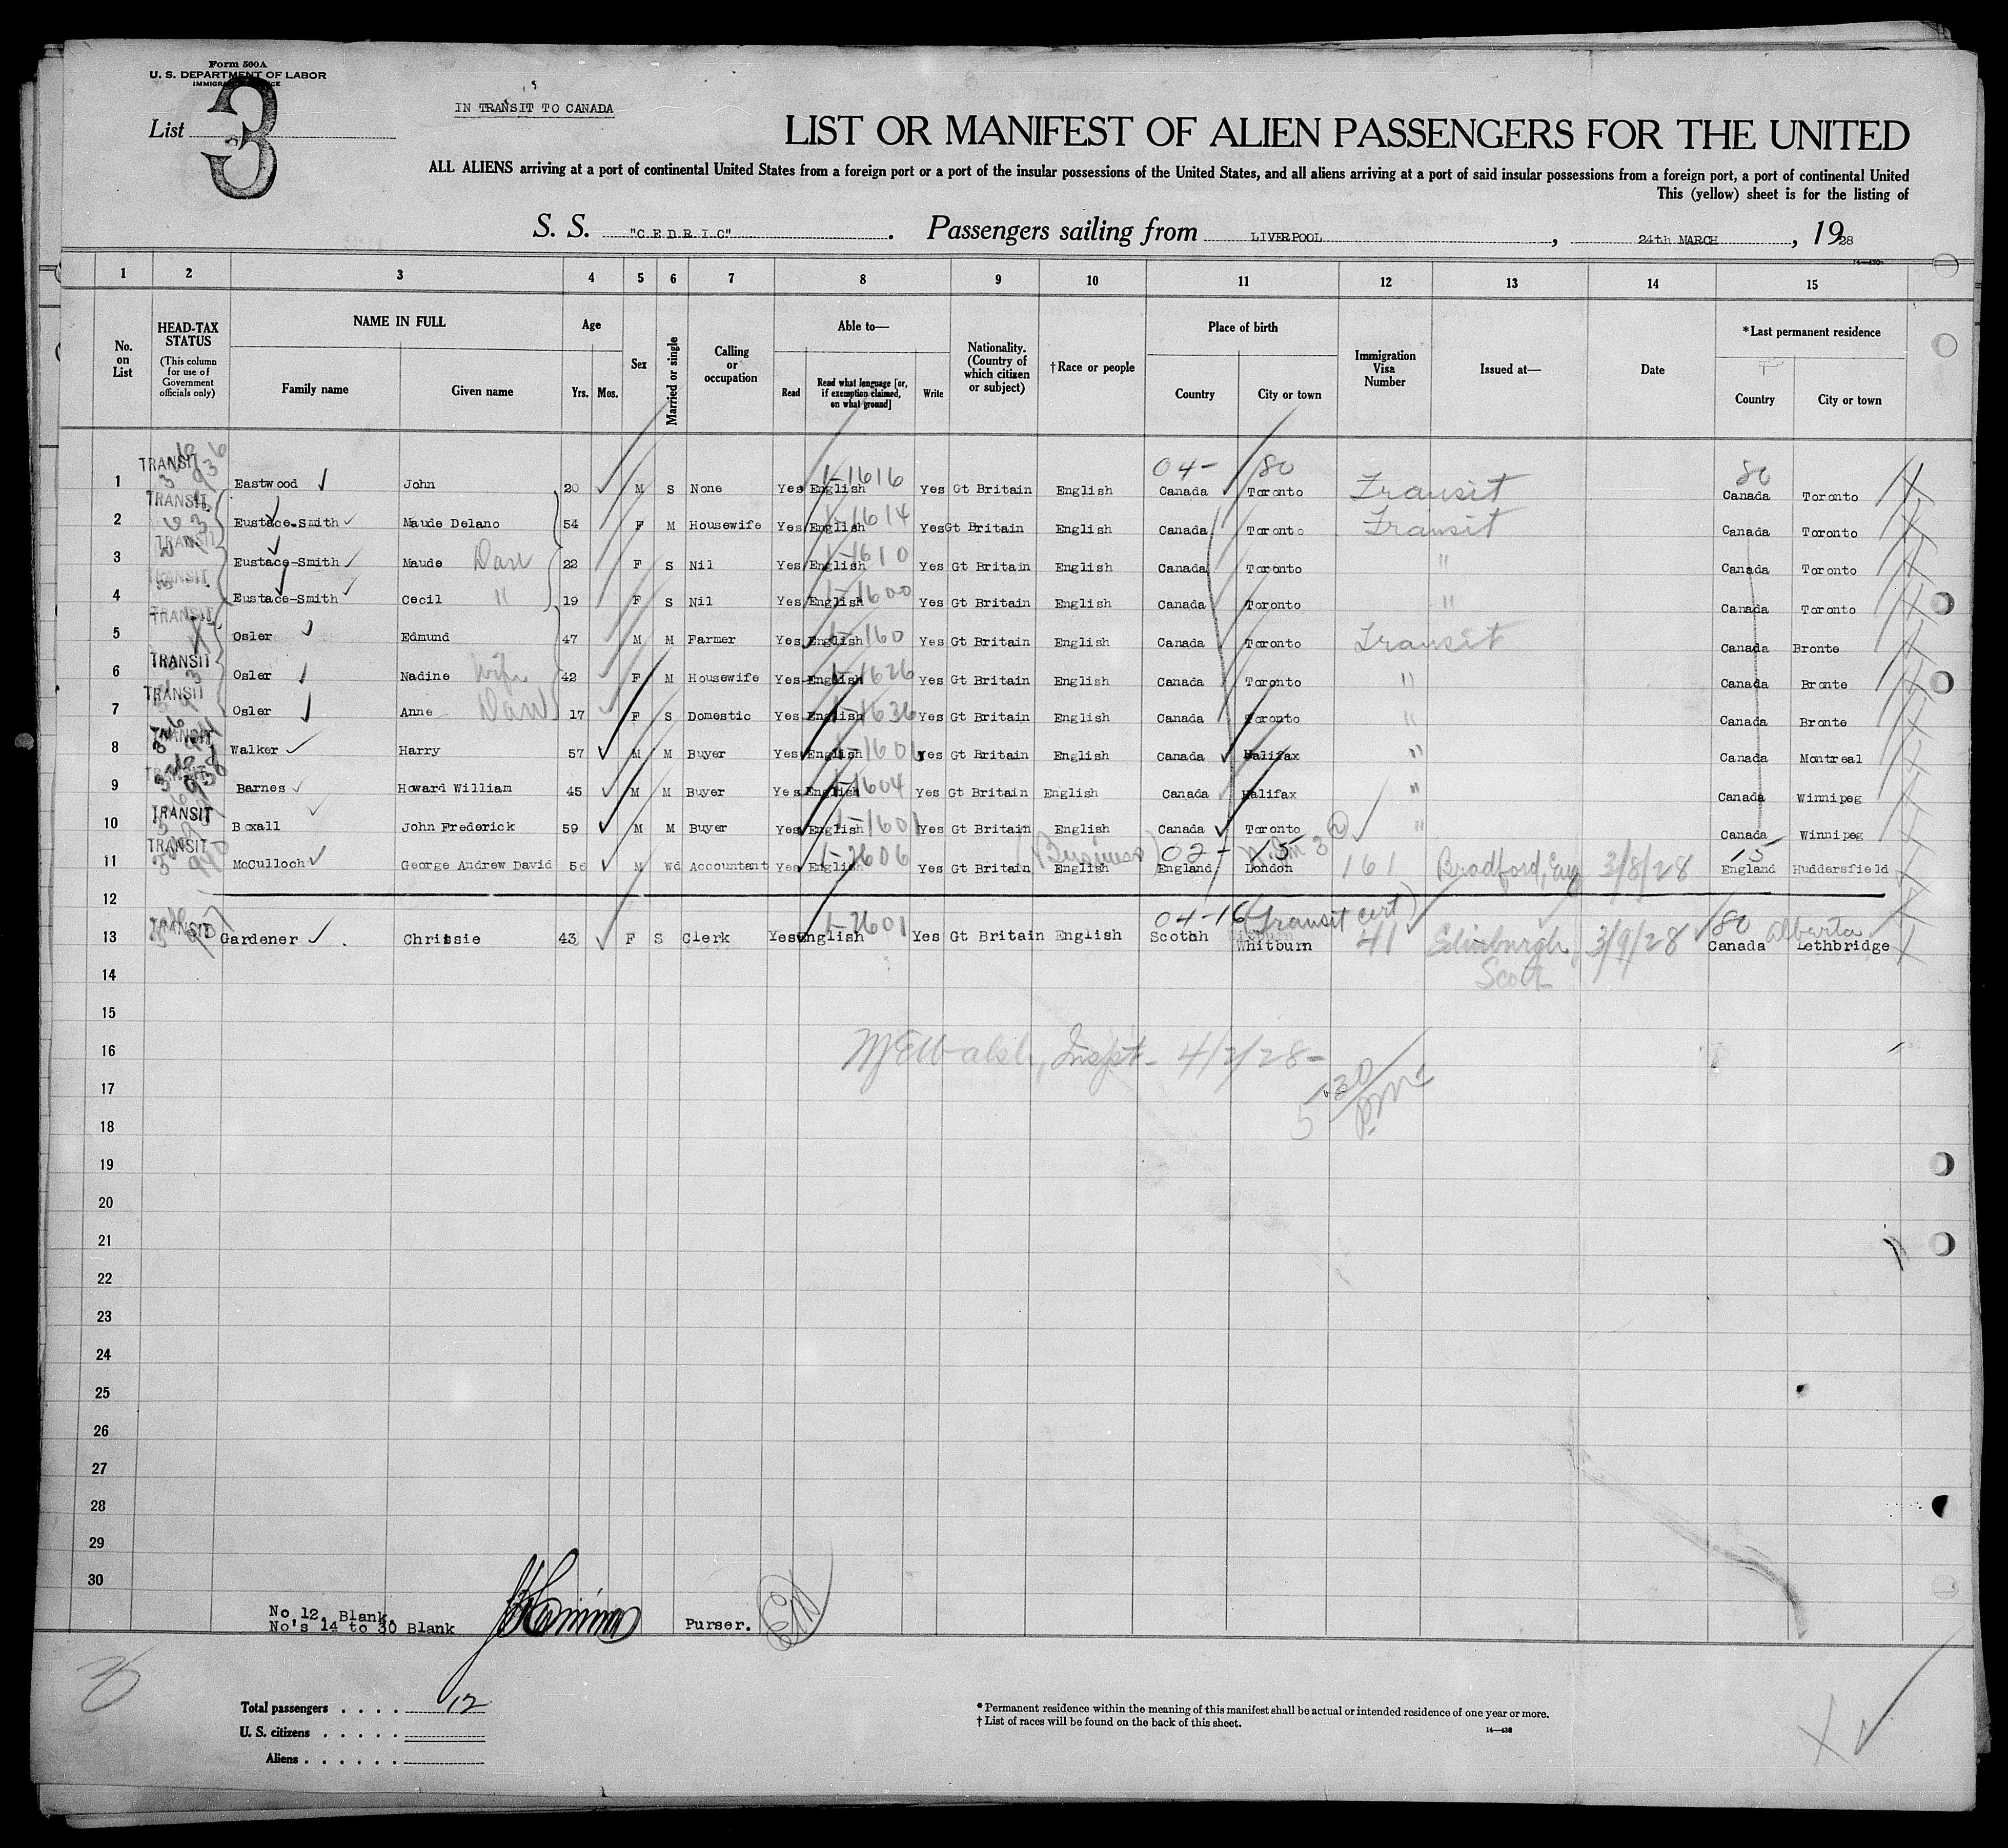 Form 500A
U. S. DEPARTMENT OF LABOR
List 3
IN TRANSIT TO CANADA
LIST OR MANIFEST OF ALIEN PASSENGERS FOR THE UNITED
ALL ALIENS arriving at a port of continental United States from a foreign port or a port of the insular possessions of the United States, and all aliens arriving at a port of said insular possessions from a foreign port, a port of continental United
This (yellow) sheet is for the listing of
S. S. "CEDRIC". Passengers sailing from LIVERPOOL, 24th MARCH, 1928
1 2 3 4 5 6 7 8 9 10 11 12 13 14 15
No. on List
HEAD-TAX STATUS (This column for use of Government officials only)
NAME IN FULL
Family name Given name
Age
Yrs. Mos.
Sex
Married or single
Calling or occupation
Able to—
Read Read what language [or, if exemption claimed, on what ground] Write
Nationality. (Country of which citizen or subject)
†Race or people
Place of birth
Country City or town
Immigration Visa Number
Issued at—
Date
*Last permanent residence
Country City or town
04- 80 80
1 TRANSIT Eastwood John 20 M S None Yes English 1-1616 Yes Gt Britain English Canada Toronto Transit Canada Toronto
2 TRANSIT Eustace-Smith Maude Delano 54 F M Housewife Yes English 1-1614 Yes Gt Britain English Canada Toronto Transit Canada Toronto
3 TRANSIT Eustace-Smith Maude 22 F S Nil Yes English 1-1610 Yes Gt Britain English Canada Toronto " Canada Toronto
4 TRANSIT Eustace-Smith Cecil " 19 F S Nil Yes English 1-1600 Yes Gt Britain English Canada Toronto " Canada Toronto
5 TRANSIT Osler Edmund 47 M M Farmer Yes English 1-160 Yes Gt Britain English Canada Toronto Transit Canada Bronte
6 TRANSIT Osler Nadine Wife 42 F M Housewife Yes English 1-1626 Yes Gt Britain English Canada Toronto " Canada Bronte
7 TRANSIT Osler Anne 17 F S Domestic Yes English 1-1636 Yes Gt Britain English Canada Toronto " Canada Bronte
8 TRANSIT Walker Harry 57 M M Buyer Yes English 1-1601 Yes Gt Britain English Canada Halifax " Canada Montreal
9 TRANSIT Barnes Howard William 45 M M Buyer Yes English 1-1604 Yes Gt Britain English Canada Halifax " Canada Winnipeg
10 TRANSIT Boxall John Frederick 59 M M Buyer Yes English 1-1601 Yes Gt Britain English Canada Toronto " Canada Winnipeg
(Business) 02- 15 15
11 TRANSIT McCulloch George Andrew David 56 M Wd Accountant Yes English Yes Gt Britain English England London 161 Bradford, Eng 3/8/28 England Huddersfield
12
04-16 (Transit cert) 80 Alberta
13 TRANSIT Gardener Chrissie 43 F S Clerk Yes English Yes Gt Britain English Scotch Whitburn 41 Edinburgh, Scot 3/9/28 Canada Lethbridge
14
15
16 Inspt- 4/2/28-
17 5 30 P.M.
18
19
20
21
22
23
24
25
26
27
28
29
30
No.12. Blank.
No's 14 to 30 Blank
Purser.
Total passengers . . . . 12
U. S. citizens . . . . .
Aliens . . . . . .
* Permanent residence within the meaning of this manifest shall be actual or intended residence of one year or more.
† List of races will be found on the back of this sheet.
14—430